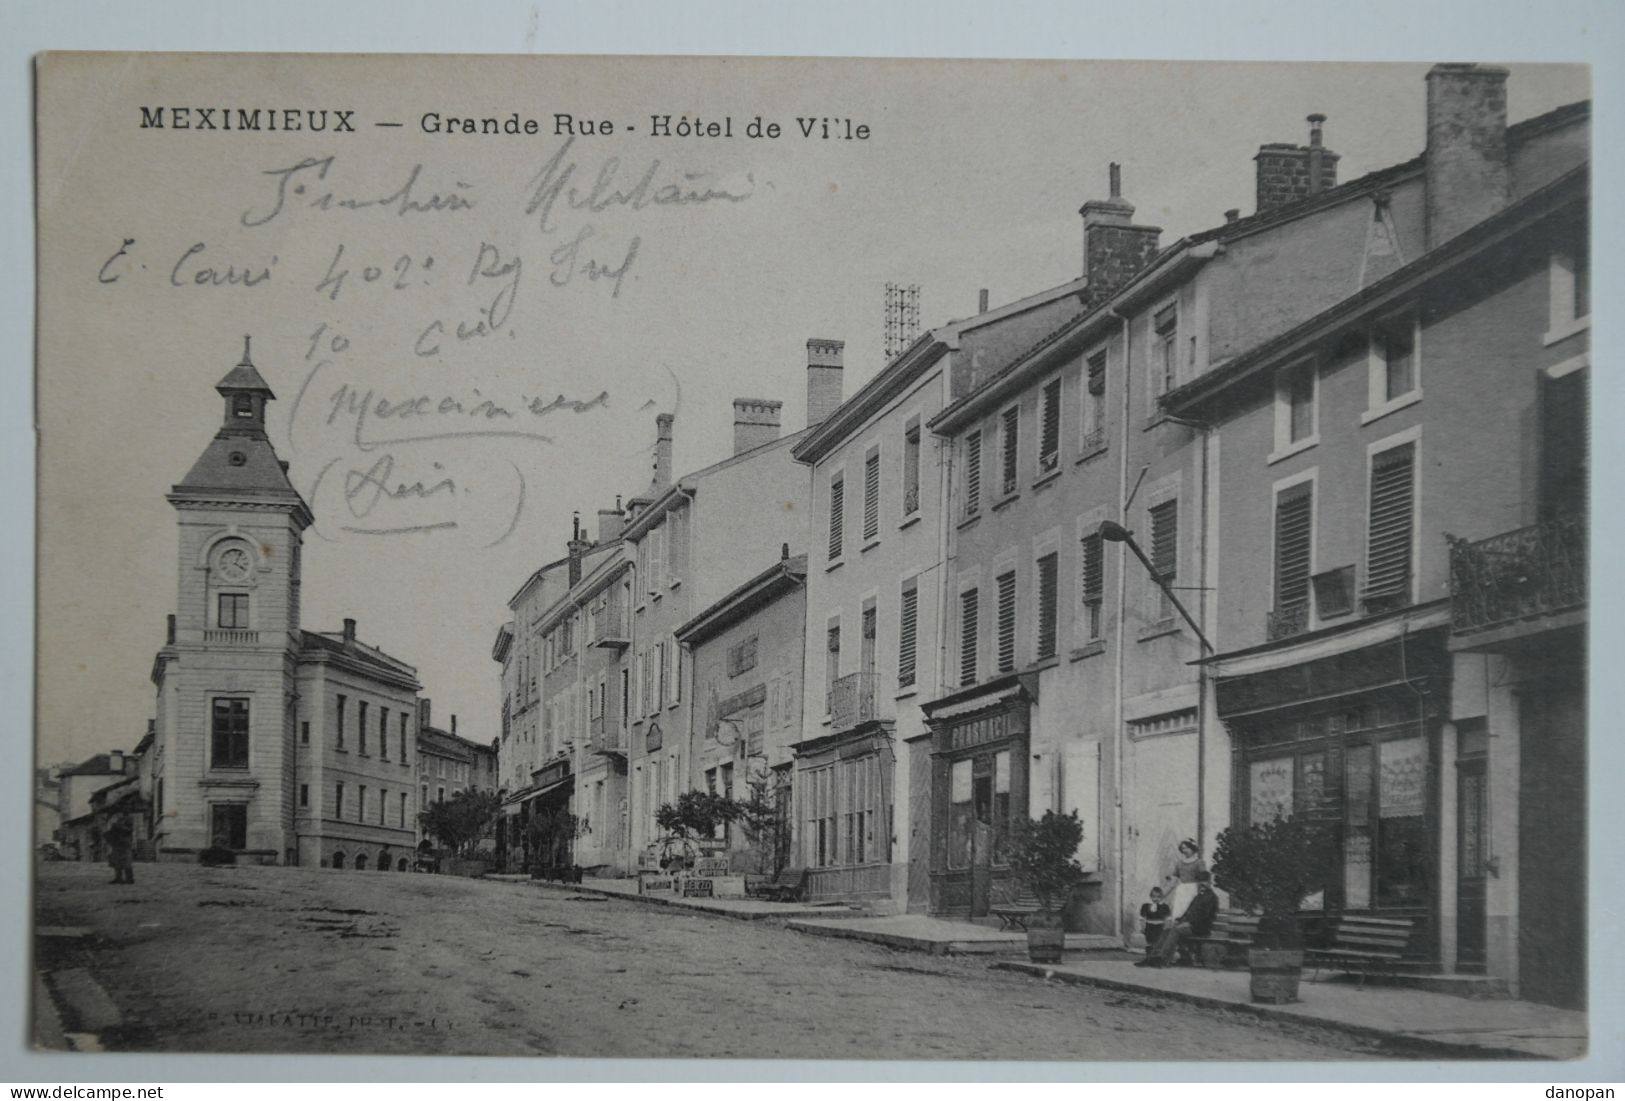 MEXIMIEUX — Grande Rue - Hôtel de Ville
Militaire
E. Carri 402e Rg Inf.
10 Cie.
(Meximieux.)
(Ain.)
PHARMACIE
BERZO
danopan